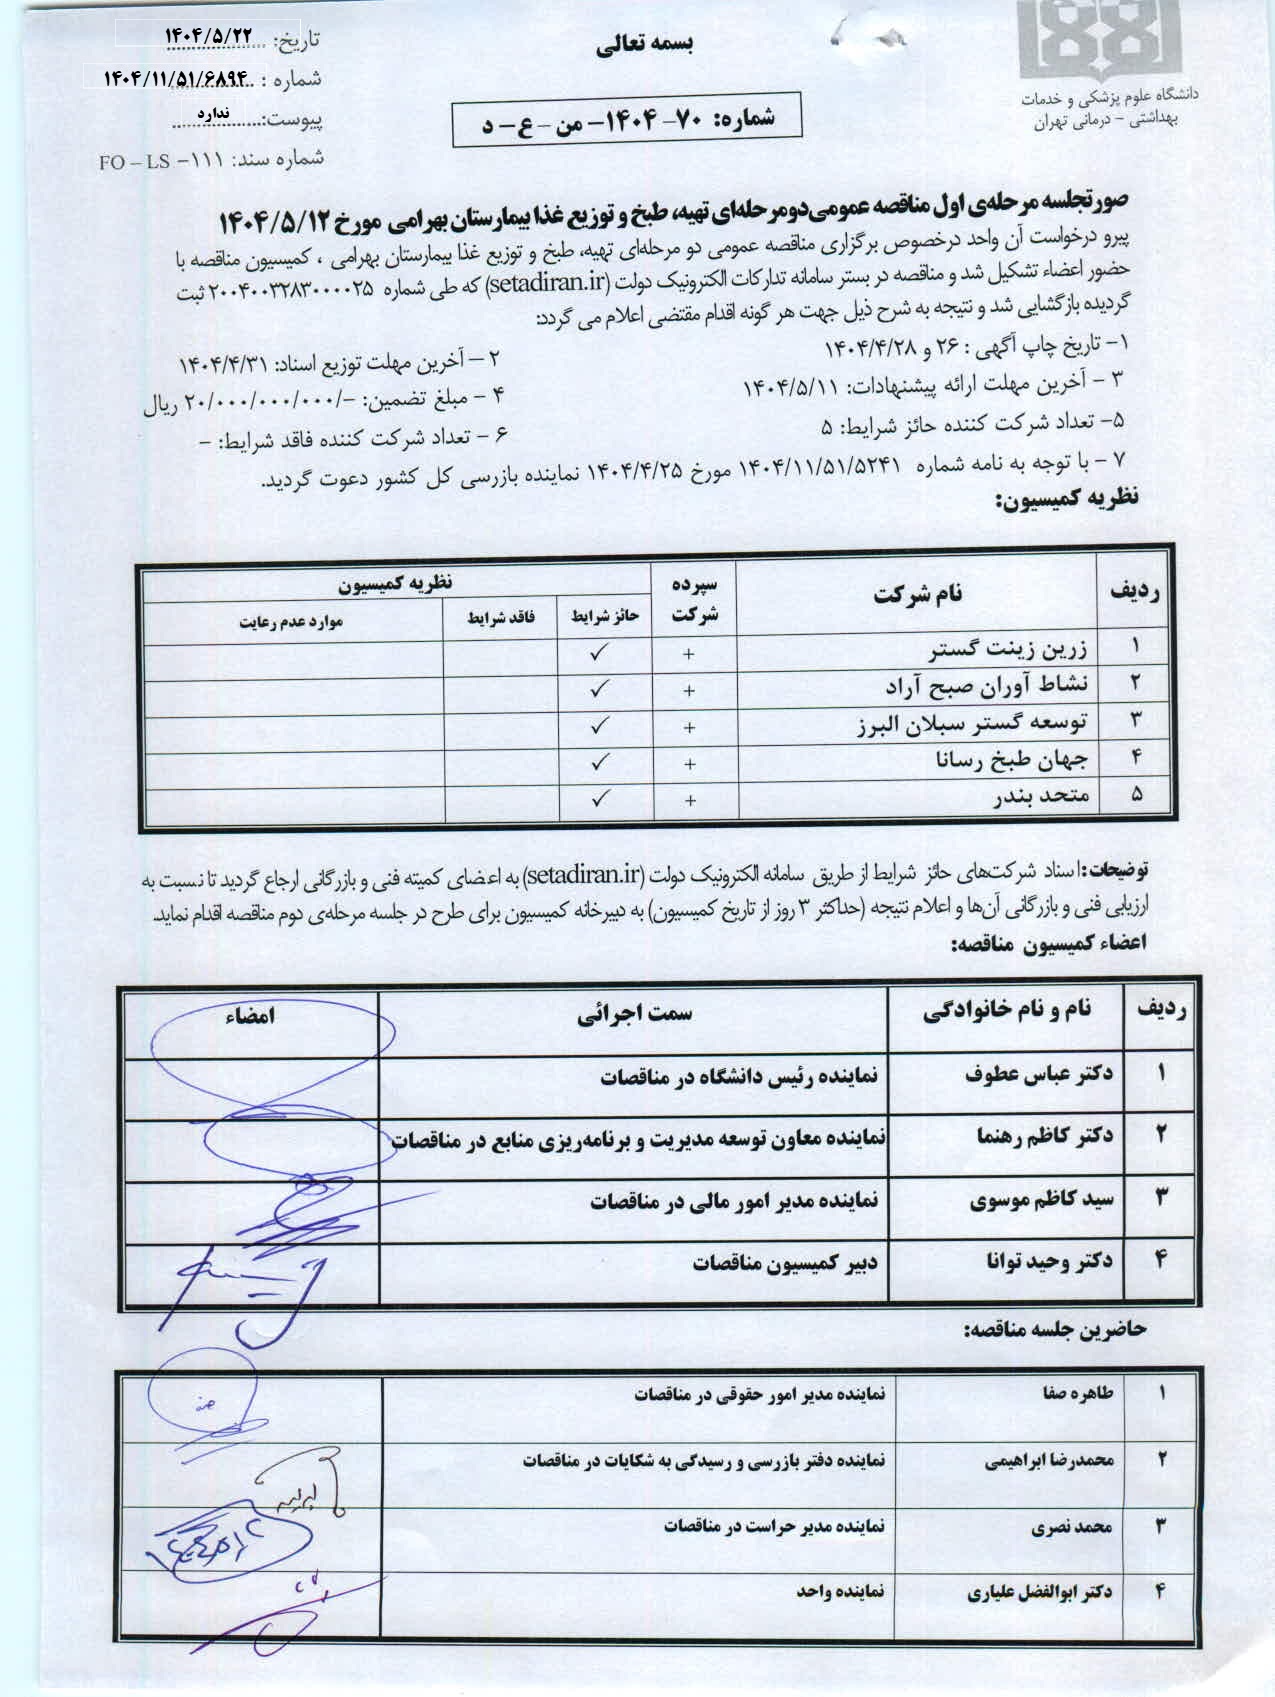 بسمه تعالی
تاریخ: ۱۴۰۴/۵/۲۲
شماره : ۱۴۰۴/۱۱/۵۱/۶۸۹۴
پیوست: ندارد
شماره سند: FO – LS –۱۱۱
دانشگاه علوم پزشکی و خدمات
بهداشتی – درمانی تهران
شماره: ۷۰- ۱۴۰۴- من - ع- د
صورتجلسه مرحله‌ی اول مناقصه عمومی دومرحله‌ای تهیه، طبخ و توزیع غذا بیمارستان بهرامی مورخ ۱۴۰۴/۵/۱۲
پیرو درخواست آن واحد درخصوص برگزاری مناقصه عمومی دو مرحله‌ای تهیه، طبخ و توزیع غذا بیمارستان بهرامی ، کمیسیون مناقصه با
حضور اعضاء تشکیل شد و مناقصه در بستر سامانه تدارکات الکترونیک دولت (setadiran.ir) که طی شماره ۲۰۰۴۰۰۳۲۸۳۰۰۰۰۲۵ ثبت
گردیده بازگشایی شد و نتیجه به شرح ذیل جهت هر گونه اقدام مقتضی اعلام می گردد:
۱- تاریخ چاپ آگهی : ۲۶ و ۱۴۰۴/۴/۲۸ ۲ – آخرین مهلت توزیع اسناد: ۱۴۰۴/۴/۳۱
۳ - آخرین مهلت ارائه پیشنهادات: ۱۴۰۴/۵/۱۱ ۴ - مبلغ تضمین: -/۲۰/۰۰۰/۰۰۰/۰۰۰ ریال
۵- تعداد شرکت کننده حائز شرایط: ۵ ۶ - تعداد شرکت کننده فاقد شرایط: -
۷ - با توجه به نامه شماره ۱۴۰۴/۱۱/۵۱/۵۲۴۱ مورخ ۱۴۰۴/۴/۲۵ نماینده بازرسی کل کشور دعوت گردید.
نظریه کمیسیون:
ردیف نام شرکت سپرده شرکت نظریه کمیسیون
حائز شرایط فاقد شرایط موارد عدم رعایت
۱ زرین زینت گستر + ✓
۲ نشاط آوران صبح آراد + ✓
۳ توسعه گستر سبلان البرز + ✓
۴ جهان طبخ رسانا + ✓
۵ متحد بندر + ✓
توضیحات: اسناد شرکت‌های حائز شرایط از طریق سامانه الکترونیک دولت (setadiran.ir) به اعضای کمیته فنی و بازرگانی ارجاع گردید تا نسبت به
ارزیابی فنی و بازرگانی آن‌ها و اعلام نتیجه (حداکثر ۳ روز از تاریخ کمیسیون) به دبیرخانه کمیسیون برای طرح در جلسه مرحله‌ی دوم مناقصه اقدام نماید.
اعضاء کمیسیون مناقصه:
ردیف نام و نام خانوادگی سمت اجرائی امضاء
۱ دکتر عباس عطوف نماینده رئیس دانشگاه در مناقصات
۲ دکتر کاظم رهنما نماینده معاون توسعه مدیریت و برنامه‌ریزی منابع در مناقصات
۳ سید کاظم موسوی نماینده مدیر امور مالی در مناقصات
۴ دکتر وحید توانا دبیر کمیسیون مناقصات
حاضرین جلسه مناقصه:
۱ طاهره صفا نماینده مدیر امور حقوقی در مناقصات
۲ محمدرضا ابراهیمی نماینده دفتر بازرسی و رسیدگی به شکایات در مناقصات
۳ محمد نصری نماینده مدیر حراست در مناقصات
۴ دکتر ابوالفضل علیاری نماینده واحد